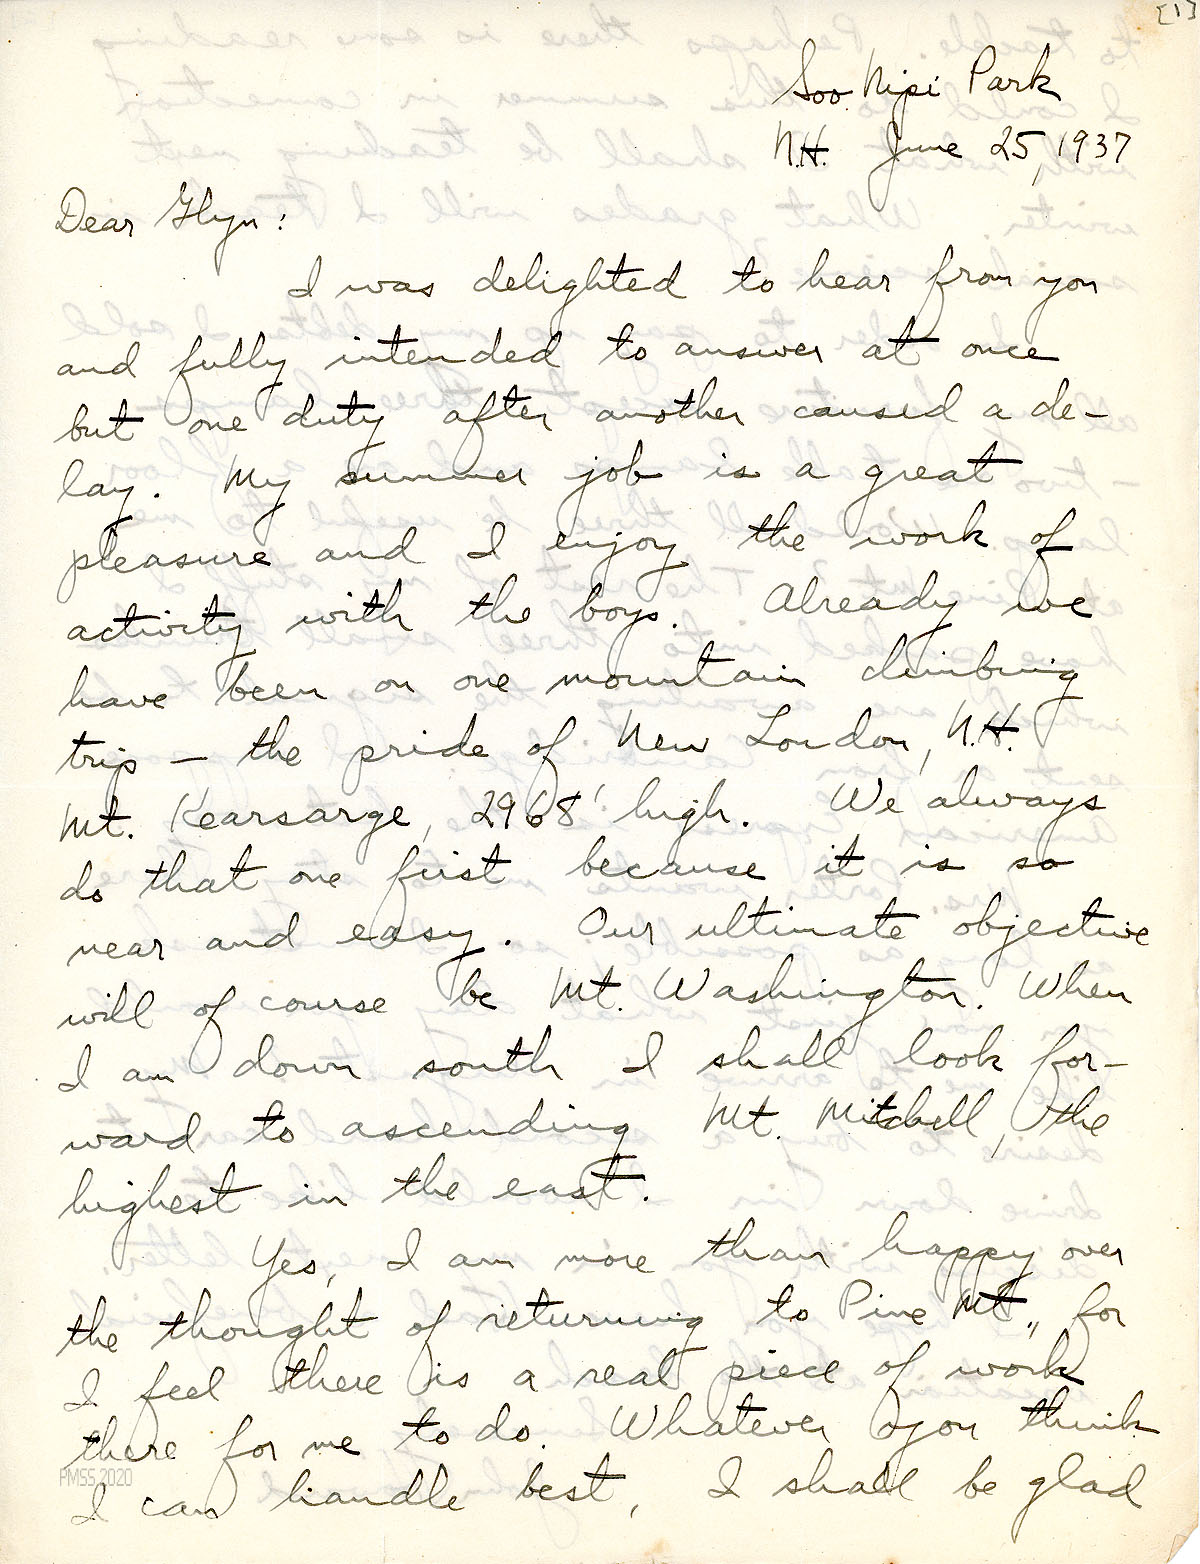 [1]
Soo Nipi Park
N.H. June 25, 1937
Dear Glyn:
I was delighted to hear from you
and fully intended to answer at once
but one duty after another caused a de-
lay. My summer job is a great
pleasure and I enjoy the work of
activity with the boys. Already we
have been on one mountain climbing
trip – the pride of New London, N.H.
Mt. Kearsarge, 2968' high. We always
do that one first because it is so
near and easy. Our ultimate objective
will of course be Mt. Washington. When
I am down south I shall look for-
ward to ascending Mt. Mitchell, the
highest in the east.
Yes, I am more than happy over
the thought of returning to Pine Mt., for
I feel there is a real piece of work
there for me to do. Whatever you think
PMSS 2020
I can handle best, I shall be glad